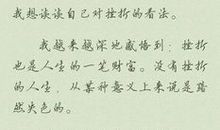 我想谈谈自己对挫折的看法。
我越来越深地感悟到：挫折
也是人生的一笔财富。没有挫折
的人生，从某种意义上来说是黯
然失色的。